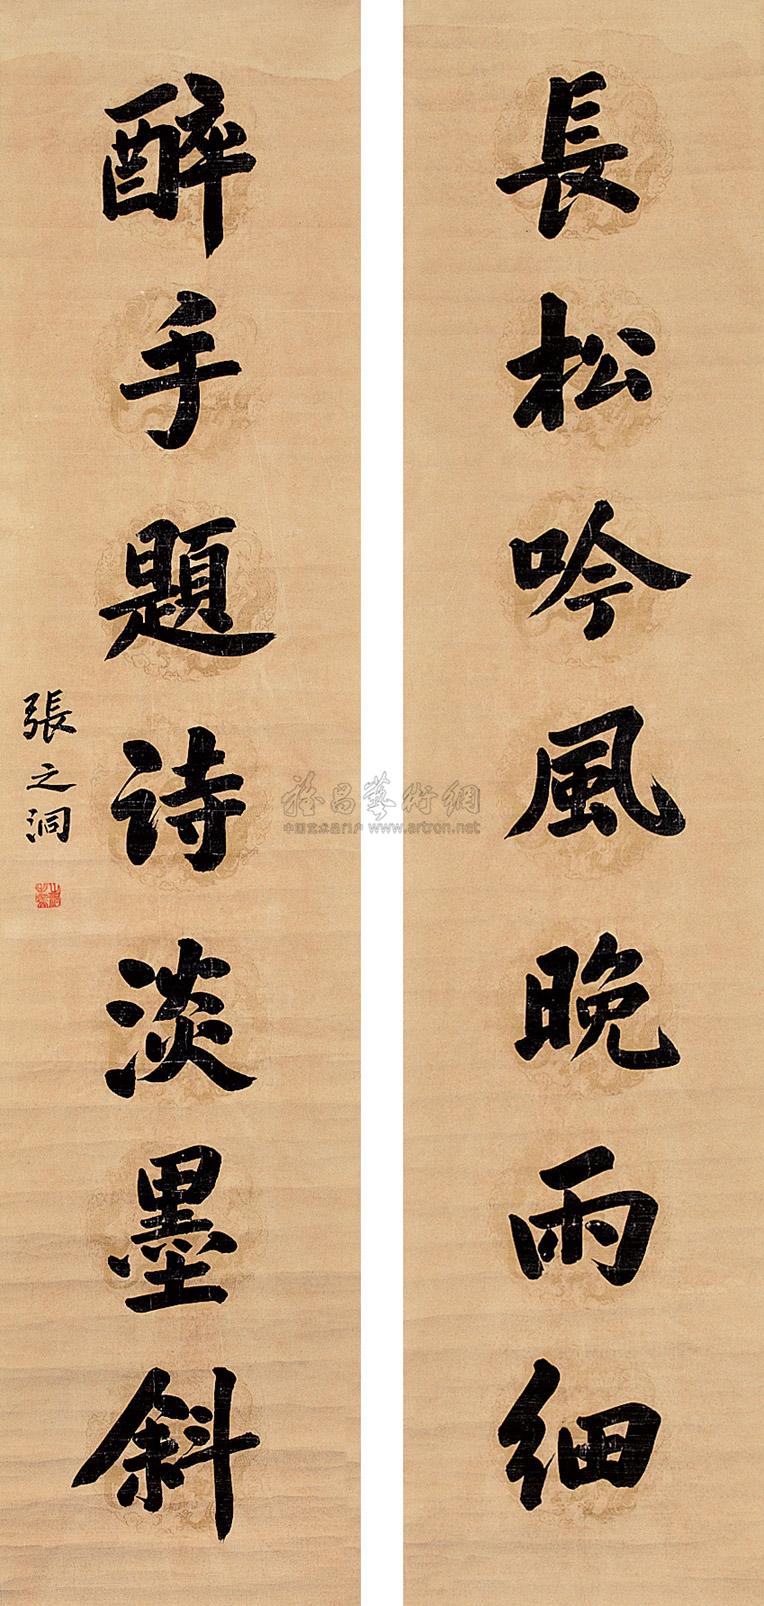 長松吟風晚雨細
醉手題诗淡墨斜
張之洞
雅昌藝術網
中国艺术品门户 www.artron.net